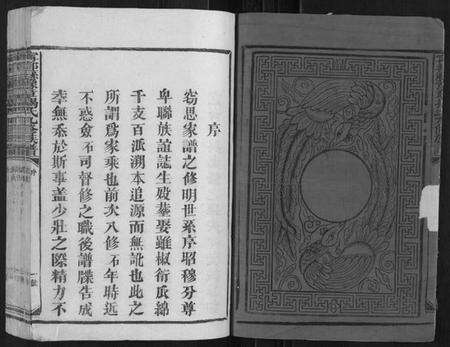 序
窃思家譜之修明世系序昭穆分尊
卑聯族誼誌生歿塟娶雖椒衍瓜綿
千支百派溯本追源而無訛也此之
所謂爲家乗也前次八修不年時近
不惑僉不司督修之職後譜牒告成
幸無忝於斯事蓋少壯之際精力不